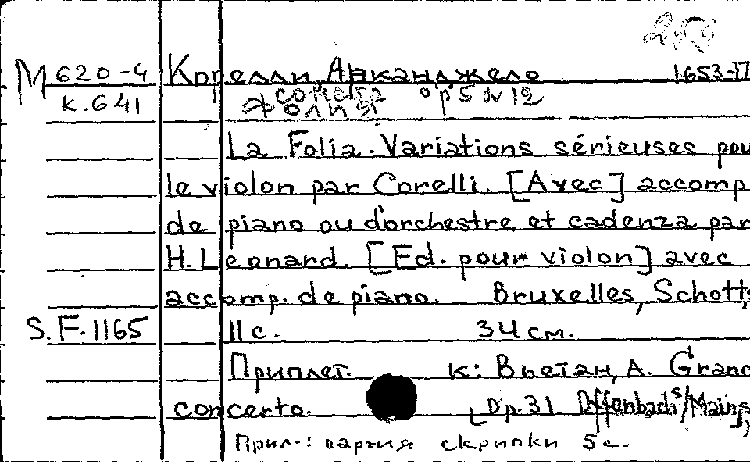 M 620-4 Корелли, Арканджело 1653-17
К.641 Соната op 5 N 12
Фолия
La Folia. Variations sérieuses pou
le violon par Corelli. [Avec] accomp
de piano ou d'orchestre et cadenza par
H. Leonard. [Ed. pour violon] avec
accomp. de piano. Bruxelles, Schott,
S.F.1165 11 с. 34 см.
Приплет. к: Вьетан, А. Grand
concerto. Op. 31 Offenbach s/Mains,
Прил.: партия скрипки 5 с.